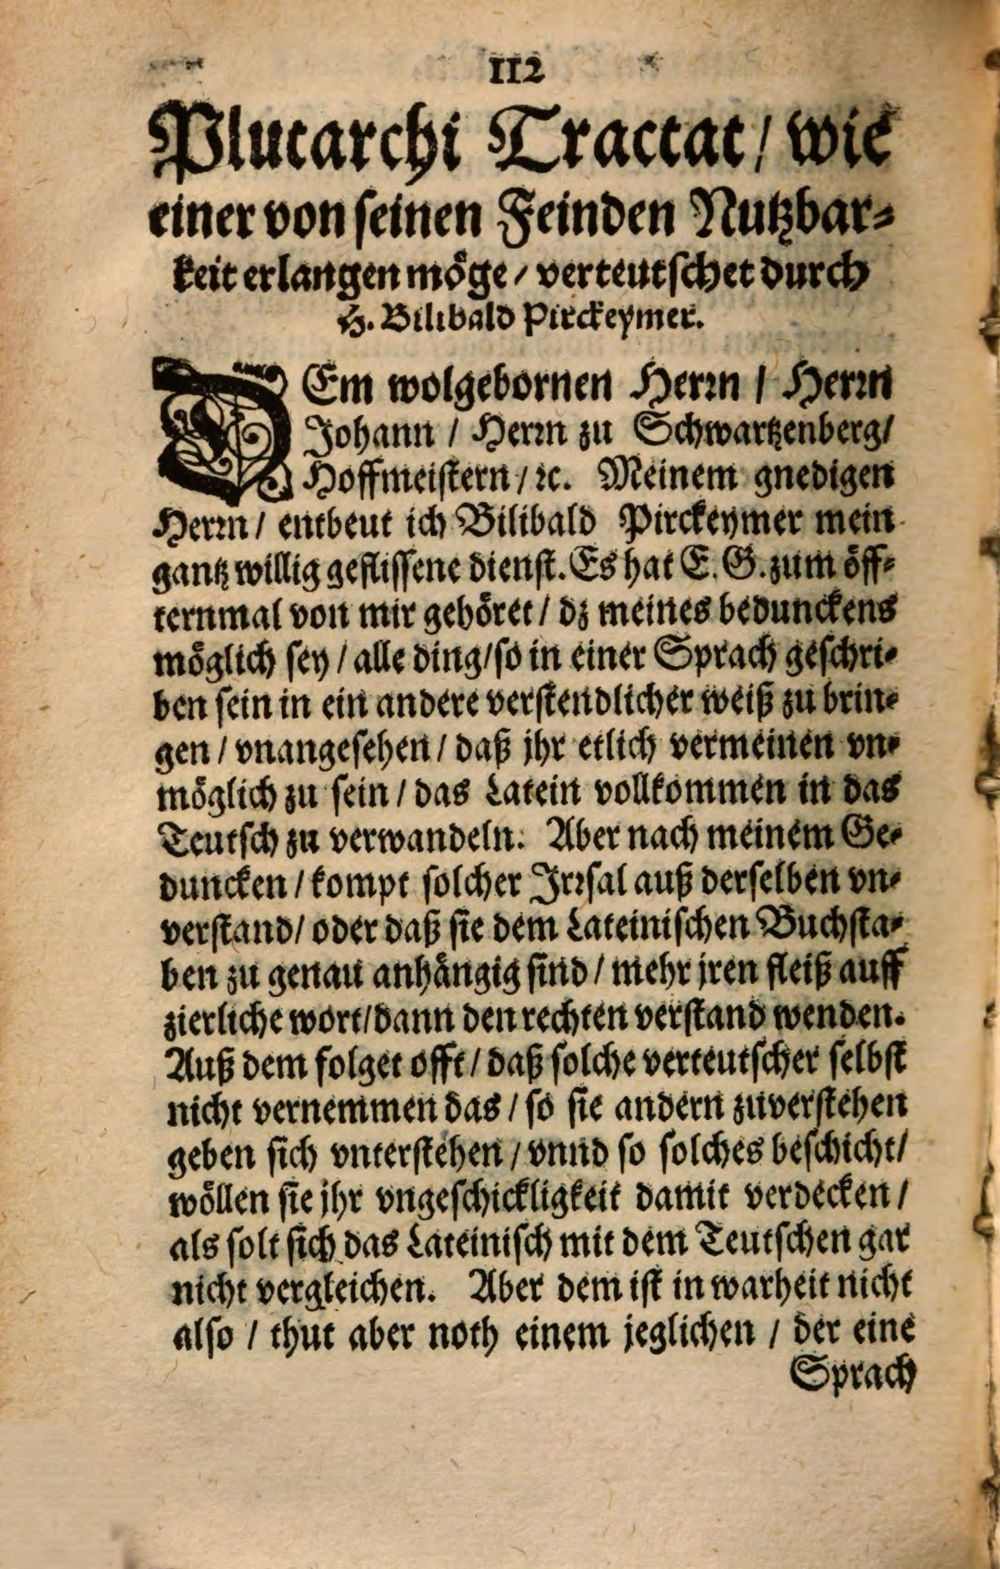 112
Plutarchi Tractat / wie
einer von seinen Feinden Nutzbar⸗
keit erlangen möge / verteutschet durch
H. Bilibald Pirckeymer.
DEm wolgebornen Herrn / Herrn
Johann / Herrn zu Schwartzenberg /
Hoffmeistern / ꝛc. Meinem gnedigen
Herrn / entbeut ich Bilibald Pirckeymer mein
gantz willig geflissene dienst. Es hat E. G. zum öff⸗
ternmal von mir gehöret / dz meines bedunckens
möglich sey / alle ding / so in einer Sprach geschri⸗
ben sein in ein andere verstendlicher weiß zu brin⸗
gen / vnangesehen / daß jhr etlich vermeinen vn⸗
möglich zu sein / das Latein vollkommen in das
Teutsch zu verwandeln. Aber nach meinem Ge⸗
duncken / kompt solcher Irrsal auß derselben vn⸗
verstand / oder daß sie dem Lateinischen Buchsta⸗
ben zu genau anhängig sind / mehr jren fleiß auff
zierliche wort / dann den rechten verstand wenden.
Auß dem folget offt / daß solche verteutscher selbst
nicht vernemmen das / so sie andern zuverstehen
geben sich vnterstehen / vnnd so solches beschicht /
wöllen sie jhr vngeschickligkeit damit verdecken /
als solt sich das Lateinisch mit dem Teutschen gar
nicht vergleichen. Aber dem ist in warheit nicht
also / thut aber noth einem jeglichen / der eine
Sprach